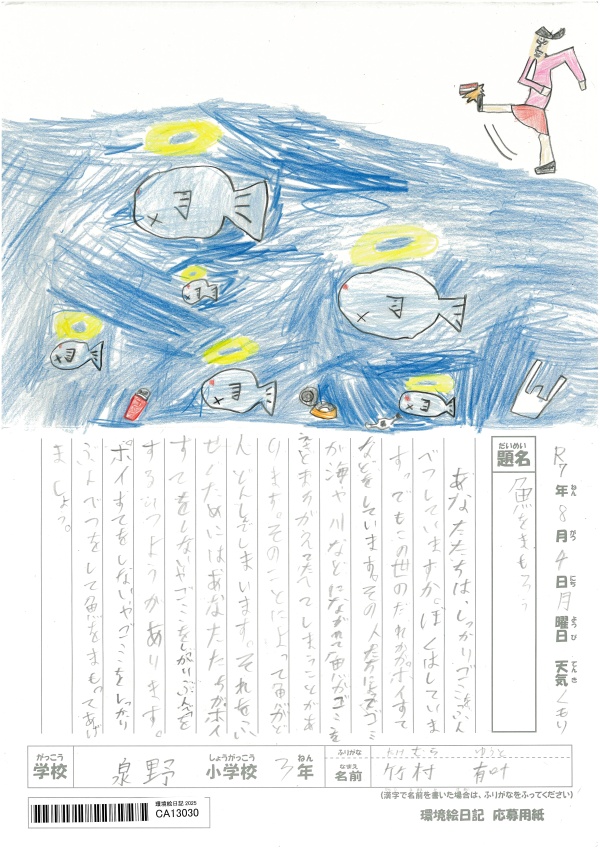 R7年ねん8月がつ4日にち月曜日ようび 天気てんきくもり
題名だいめい 魚をまもろう
あなたたちは、しっかりゴミをぶん
べつしていますか。ぼくはしていま
す。でもこの世のだれかがポイすて
などをしています。その人たちによってゴミ
が海や川などにながれて魚がゴミを
えさとまちがえてたべてしまうことがあ
ります。そのことに上って魚がど
んどんしんでしまいます。それをふ
せぐためにはあなたたちがポイ
すてをしないやゴミをしっかりぶんべつを
するひつようがあります。
ポイすてをしないやゴミをしっかり
ぶんべつをして魚をまもってあげ
ましょう。
がっこう しょうがっこう ねん ふりがな たけむら ゆうと
学校 泉野 小学校 3年 なまえ 名前 竹村 有叶
(漢字で名前を書いた場合は、ふりがなをふってください)
環境絵日記 2025
CA13030
環境絵日記 応募用紙